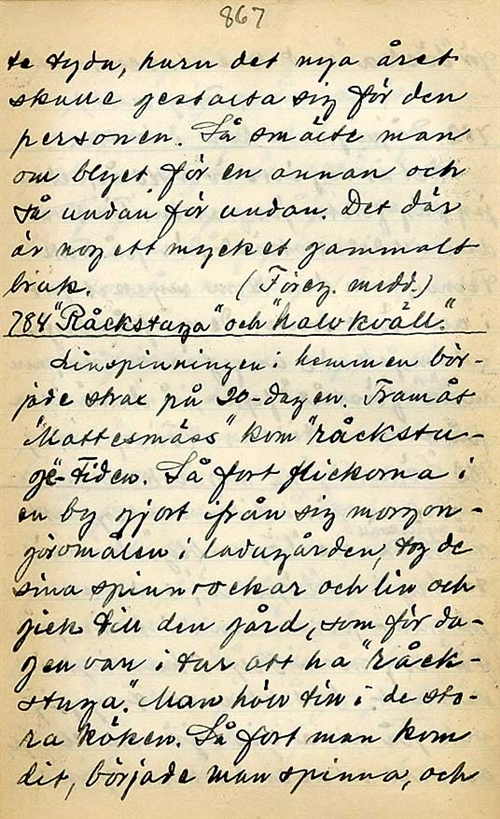 867
te tyda, huru det nya året
skulle gestalta sig för den
personen. Så smälte man
om blyet för en annan och
så undan för undan. Det där
är nog ett mycket gammalt
bruk. (Föreg. medd.)
784 "Råckstuga" och "halvkväll."
Linspinningen i hemmen bör-
jade strax på 20-dagen. Framåt
"Mattesmäss" kom "råckstu-
ge"-tiden. Så fort flickorna i
en by gjort ifrån sig morgon-
göromålen i ladugården, tog de
sina spinnrockar och lin och
gick till den gård, som för da-
gen var i tur att ha "råck-
stuga". Man höll till i de sto-
ra köken. Så fort man kom
dit, började man spinna, och